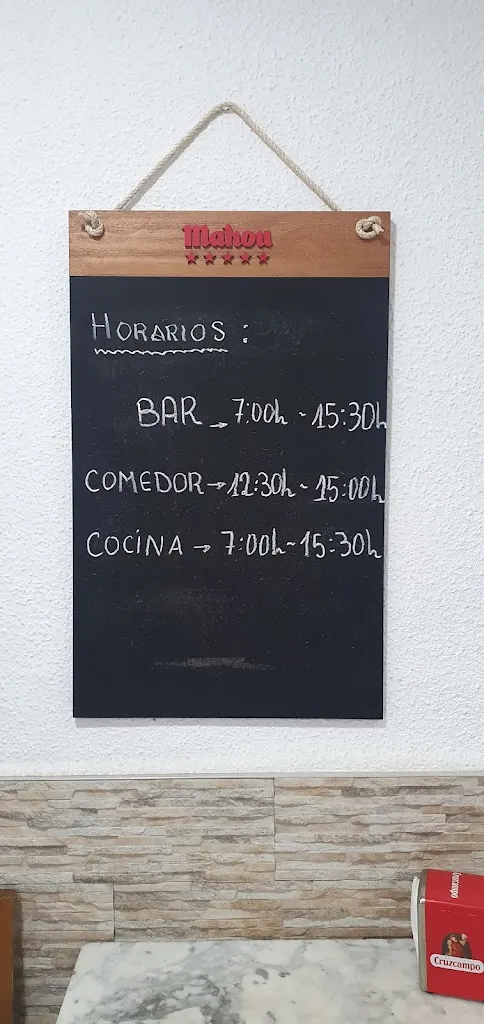 Mahou
★★★★★
HORARIOS :
BAR → 7:00h - 15:30h
COMEDOR → 12:30h - 15:00h
COCINA → 7:00h - 15:30h
Cruzcampo
Cruzcampo